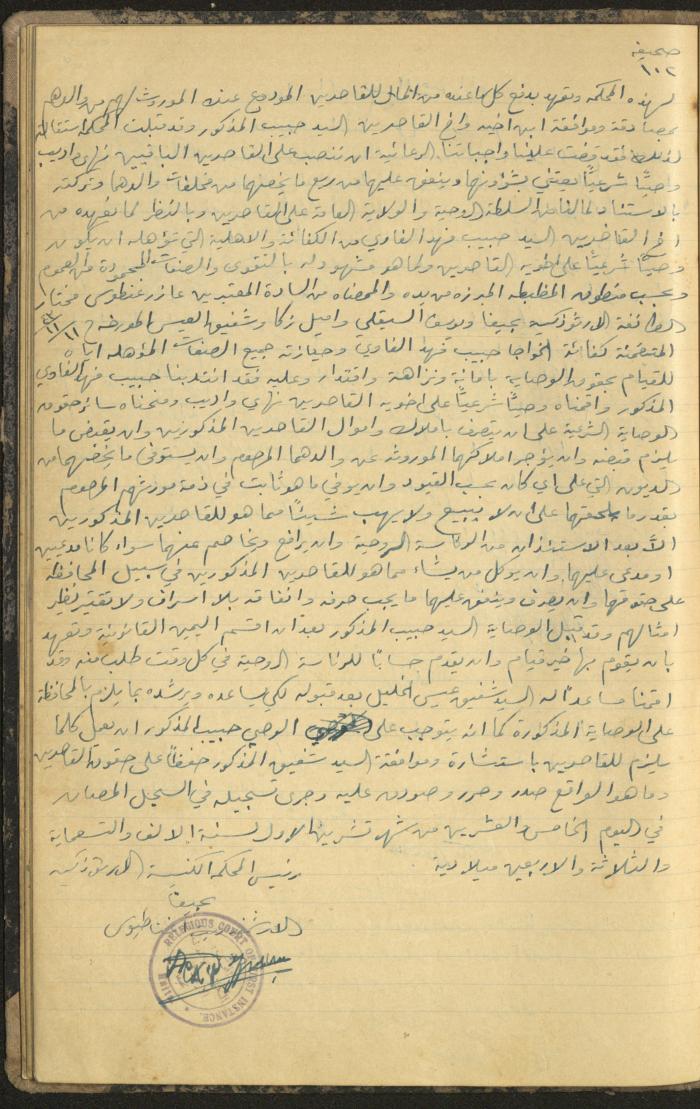 صحيفة
١٠٢
لهذه المحكمة وتعهد بدفع كل ما عنده من المال للقاصرين المودوع عنده الموروث لهم من والدهم
بمصادقة وموافقة ابن اخيه واخ القاصرين السيد حبيب المذكور وقد قبلت المحكمة استقالته
لذلك فقد قضت علينا واجباتنا الرعائية ان ننصب على القاصرين الباقيين نهاد واديب
وصيًا شرعيًا يعتني بشؤونهما وينفق عليهما من ريع ما يخصهما من مخلفات والدهما وتركته
بالاستناد لما لنا من السلطة الروحية والولاية العامة على القاصرين وبالنظر لما نعهده من
اخ القاصرين السيد حبيب فهد الفاوي من الكفائة والاهلية التي تؤهله ان يكون
وصيًا شرعيًا على اخويه القاصرين ولما هو مشهود له بالتقوى والصفات المحمودة من العموم
وبحسب منطوق المظبطه المبرزه من يده والممضاه من السادة المعتبرين عازر غنطوس مختار
الطائفة الارثوذكسية بحيفا ويوسف السيقلي واميل زكا وشفيق العيسى المؤرخة في ١١/١١/٤٣
المتضمنة كفائة الخواجا حبيب فهد الفاوي وحيازته جميع الصفات المؤهله اياه
للقيام بحقوق الوصاية بامانة ونزاهة واقتدار وعليه فقد انتدبنا حبيب فهد الفاوي
المذكور واقمناه وصيًا شرعيًا على اخويه القاصرين نهاد واديب ومنحناه سائر حقوق
الوصاية الشرعية على ان يتصرف باملاك واموال القاصرين المذكورين وان يقبض ما
يلزم قبضه وان يؤجر املاكهما الموروثه عن والدهما المرحوم وان يستوفي ما يخصهما من
الديون التي على اي كان بحسب القيود وان يوفي ما هو ثابت في ذمة مورثهم المرحوم
بقدر ما يلحقهما على ان لا يبيع ولا يهب شيئًا مما هو للقاصرين المذكورين
الاّ بعد الاستئذان من الرئاسة الروحية وان يرافع ويخاصم عنهما سواء كانا مدعيين
او مدعى عليهما وان يوكل من يشاء مما هو للقاصرين المذكورين في سبيل المحافظة
على حقوقهما وان يصرف وينفق عليهما ما يجب صرفه وانفاقه بلا اسراف ولا تقتير نظير
امثالهم وقد قبل الوصاية السيد حبيب المذكور بعد ان اقسم اليمين القانونية وتعهد
بان يقوم بها خير قيام وان يقدم حسابًا للرئاسة الروحية في كل وقت طلب منه وقد
اقمنا مساعدًا له السيد شفيق عيسى الخليل بعد قبوله لكي يساعده ويرشده بما يلزم بالمحافظة
على الوصاية المذكورة كما انه يتوجب على الوصي حبيب المذكور ان يعمل كلما
يلزم للقاصرين باستشارة وموافقة السيد شفيق المذكور حفظًا على حقوق القاصرين
وما هو الواقع صدر وحرر وصودق عليه وجرى تسجيله في السجل المصان
في اليوم الخامس والعشرين من شهر تشرين الاول لسنة الالف والتسعماية
والثلاثة والاربعين ميلادية
رئيس المحكمة الكنسية الارثوذكسية
بحيفا
RELIGIOUS COURT OF FIRST INSTANCE.